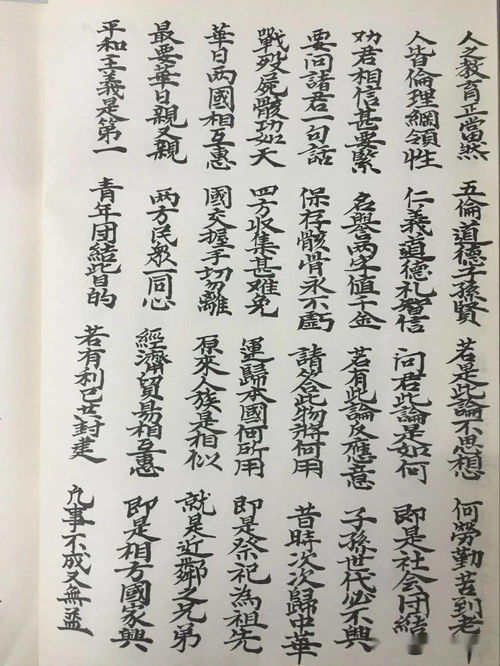 人之教育正當然 五倫道德子孫賢 若是此論不思想 何勞勤苦到老
人皆倫理綱領性 仁義道德礼智信 问君此論是如何 即是社会団結
劝君相信甚要緊 名譽两字值千金 若有此論反應意 子孫世代必不興
要问諸君一句話 保存骸骨永不虧 請答此物將何用 昔時次次歸中華
戰殁屍骸功如天 四方收集甚难免 運歸本國何所用 即是祭祀為祖先
華日两國相互惠 國交握手切離 原來人族是相似 就是近鄰之兄弟
最要華日親又親 两方民衆一同心 經濟貿易相互惠 即是相方國家興
平和主義是第一 青年団結皆目的 若有利己共封建 凡事不成又無益